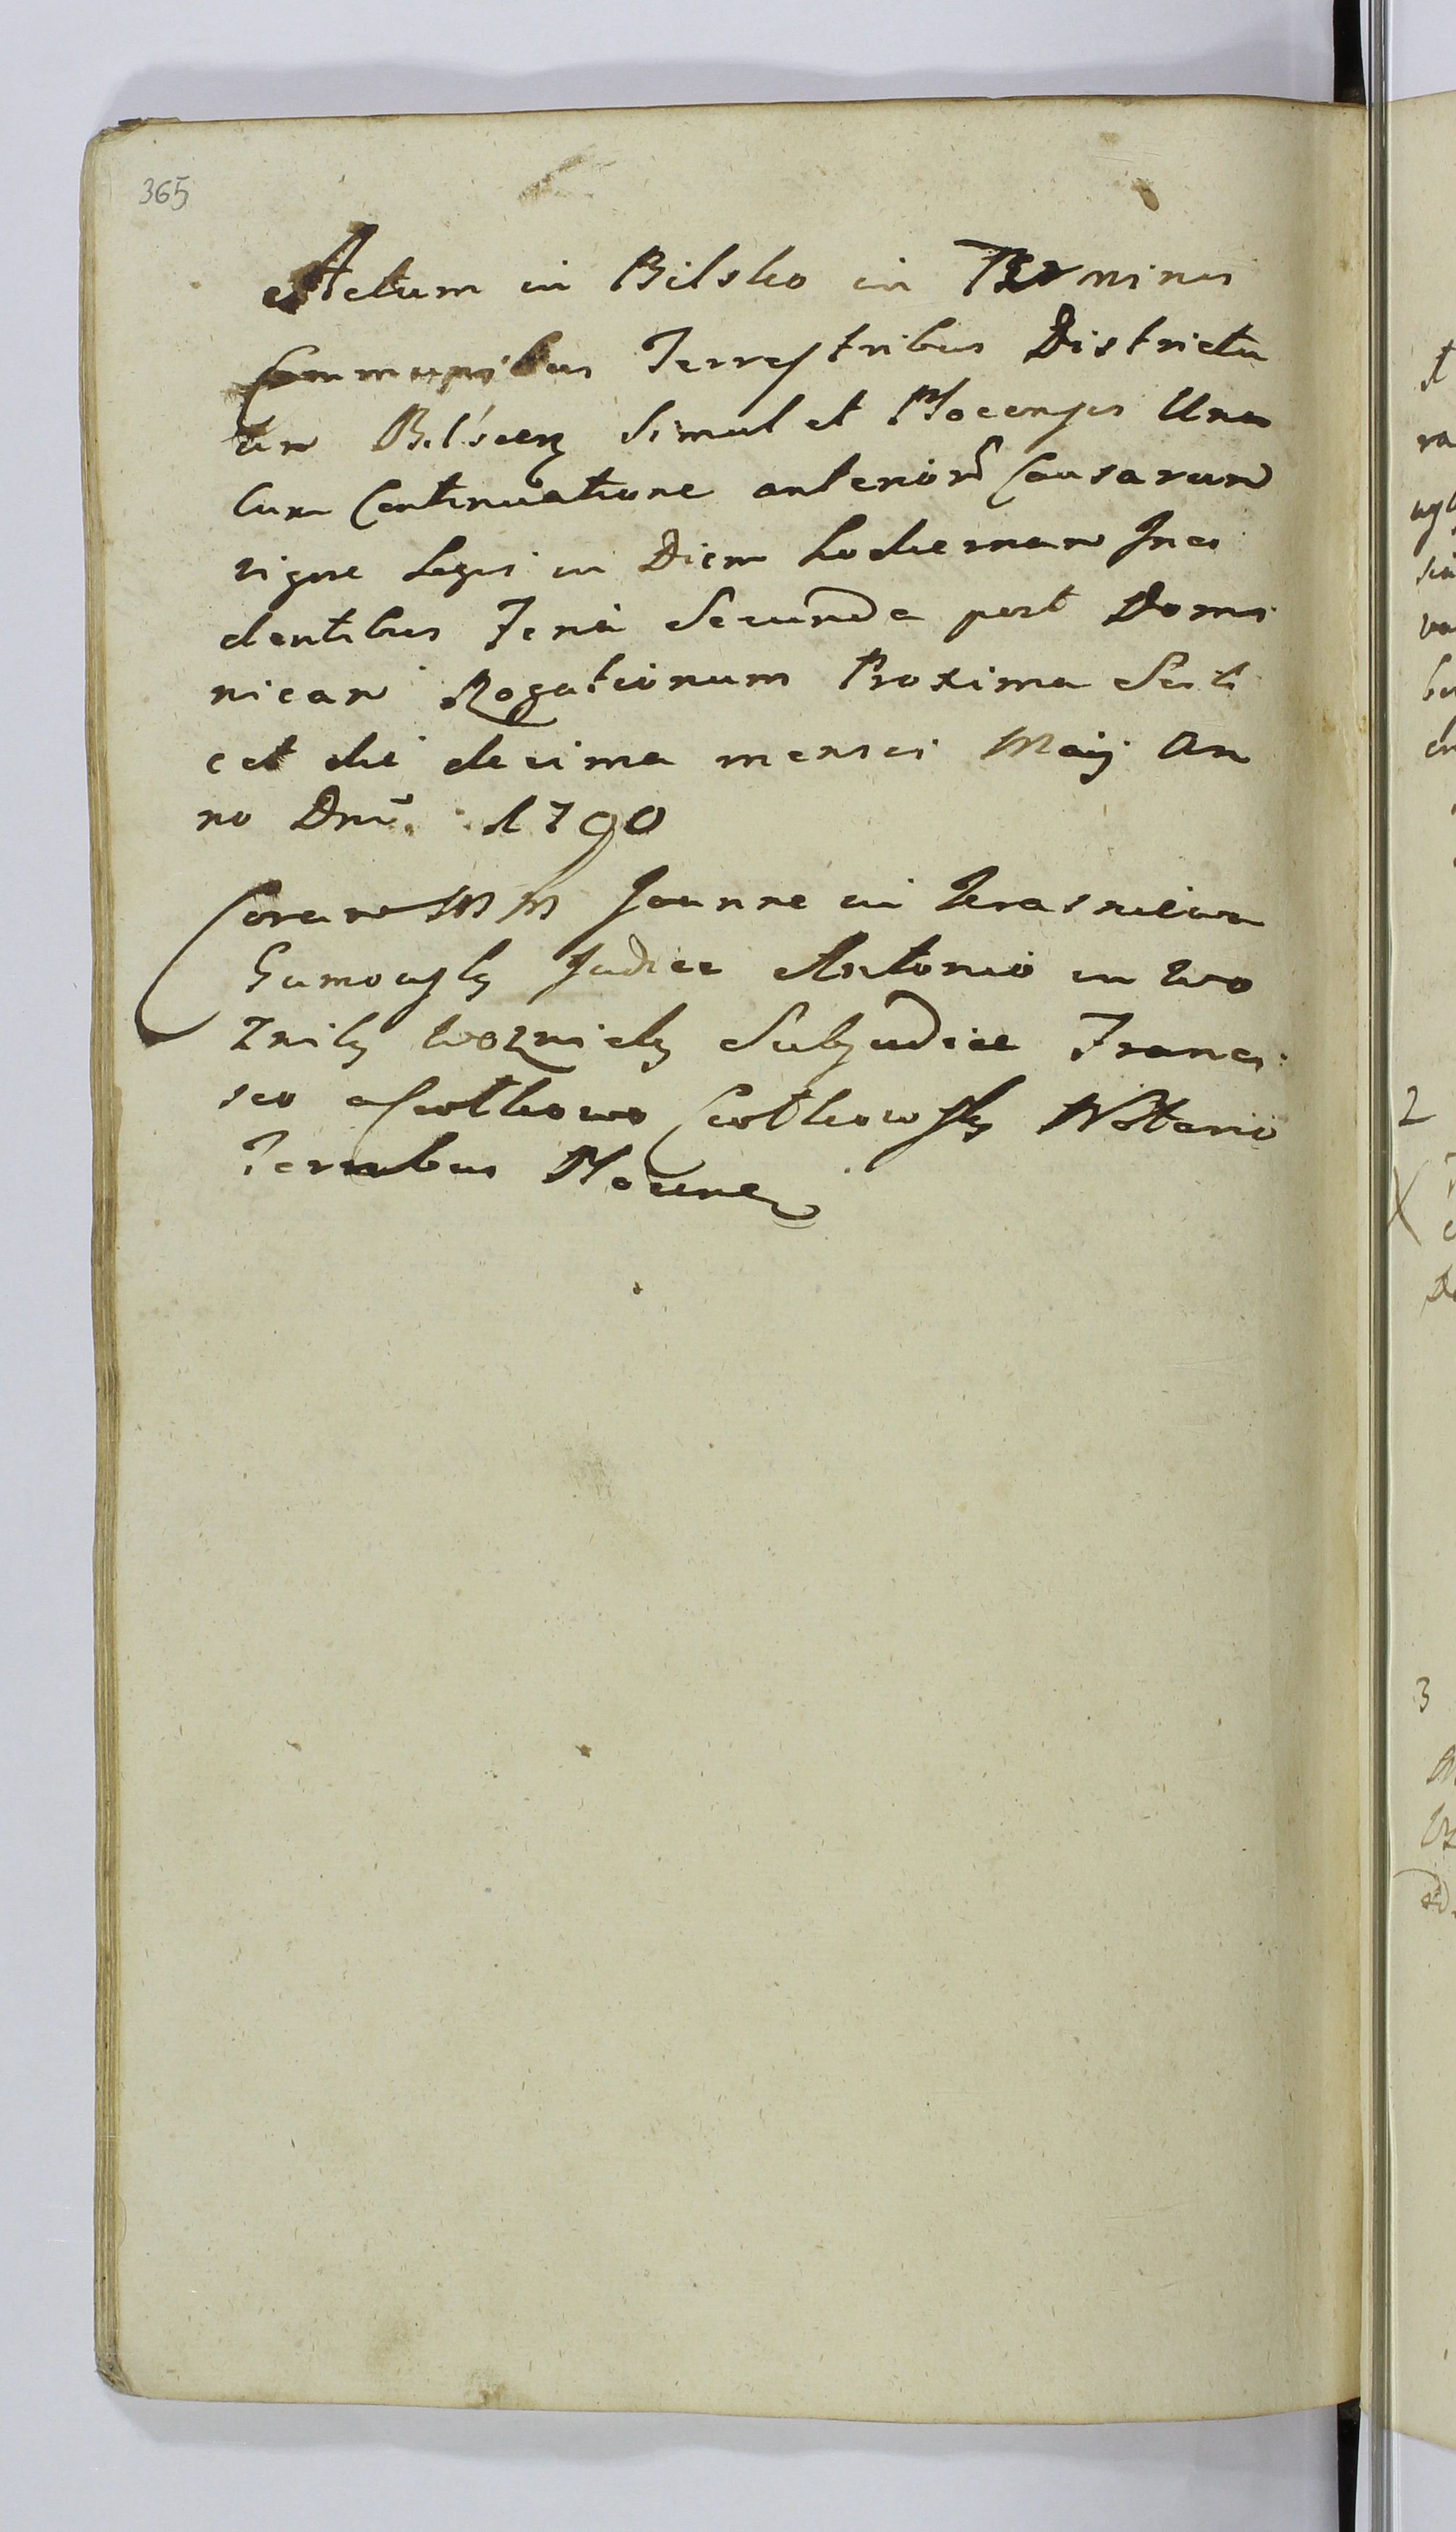 365
Actum in Bilsko in Terminis
Communibus Terrestribus Districtu
um Bilscen simul et Plocensis Una
Cum Continuatione anterior Causarum
vigore Legis in Diem hodiernam Inci
dentibus Feria Secunda post Domi
nicam Rogationum Proxima Scili
cet die decima mensis Maij An
no Dni. 1790
Coram MM Joanne in
Judice Antonio in Wo
zniki Woznicki Subjudice Franci
sco Notario
Plocens
2
3